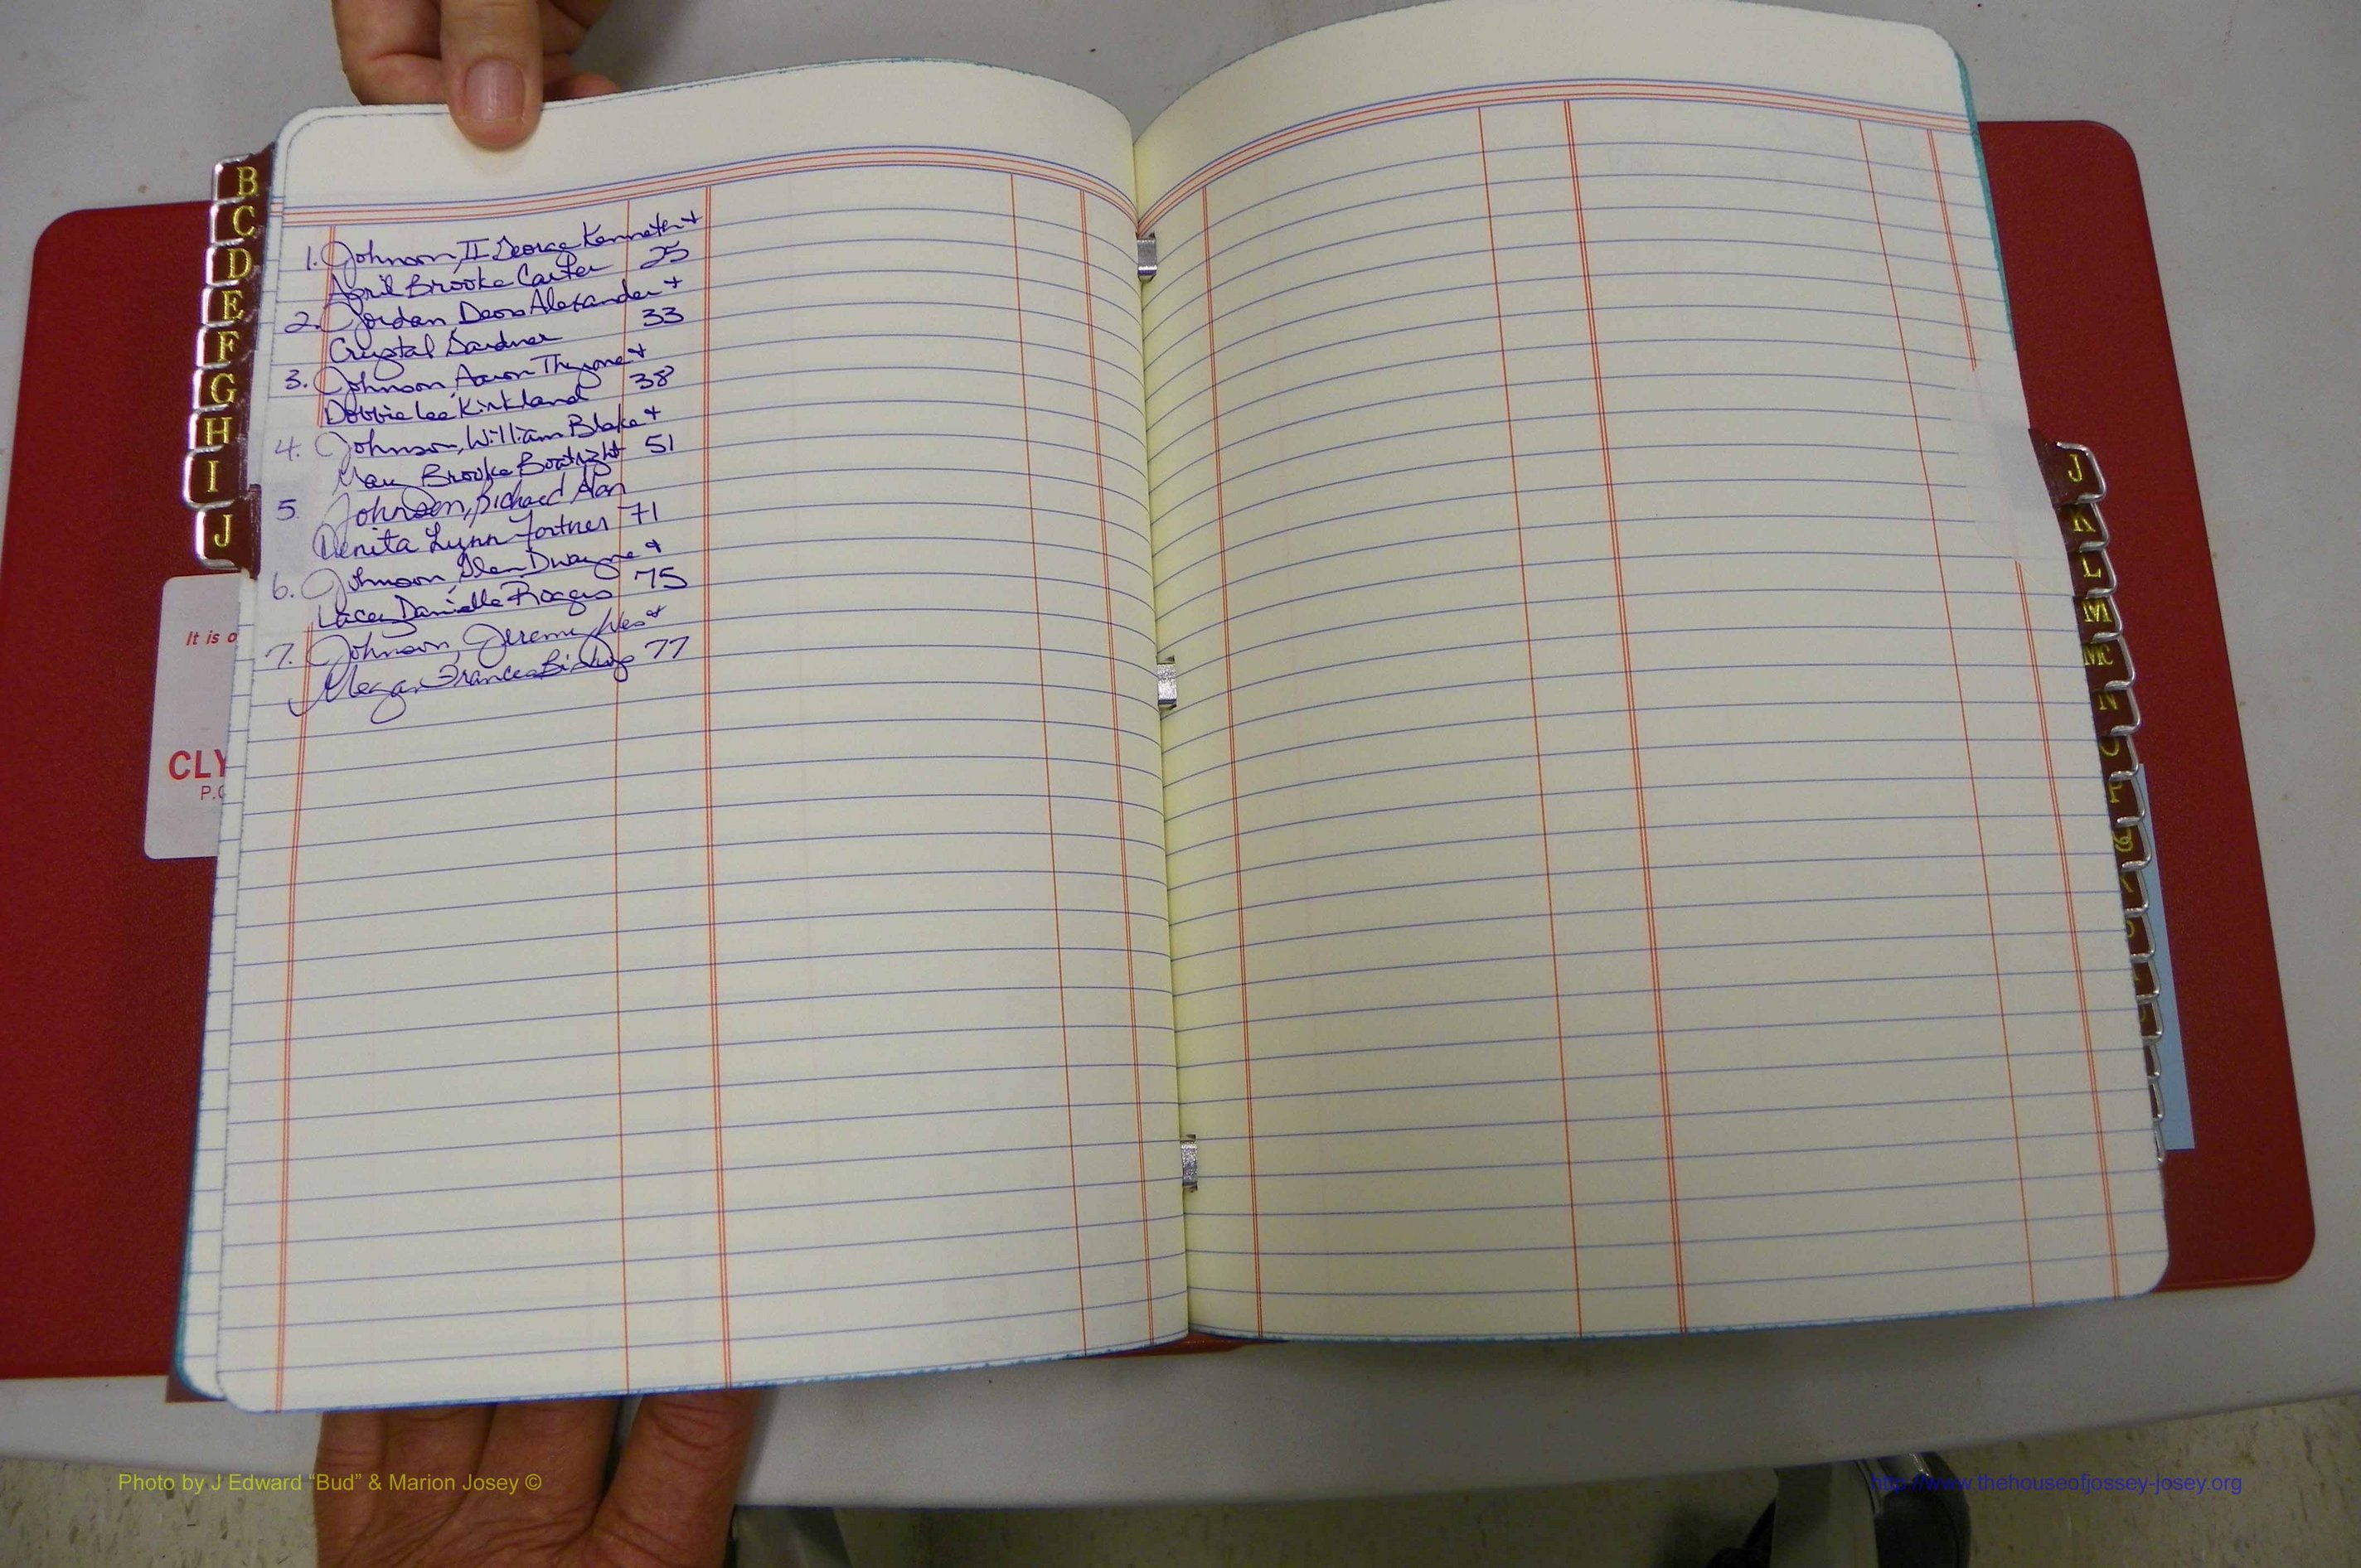 B
C
D
E
F
G
H
I
J
1. Johnson, II George Kenneth +
April Brooke Carter 25
2. Jordan, Deon Alexander +
Crystal Gardner 33
3. Johnson, Aaron +
Debbie Lee Kirkland 38
4. Johnson, William Blake +
Mary Brooke Boatright 51
5 Johnson, Richard Alan
Denita Lynn Fortner 71
6. Johnson, Glen Dwayne +
Lacey Danielle Rogers 75
7. Johnson, Jeremy Wes +
Megan Frances 77
It is o
CLY
P.O
J
K
L
M
MC
N
Photo by J Edward “Bud” & Marion Josey ©
http://www.thehouseofjossey-josey.org